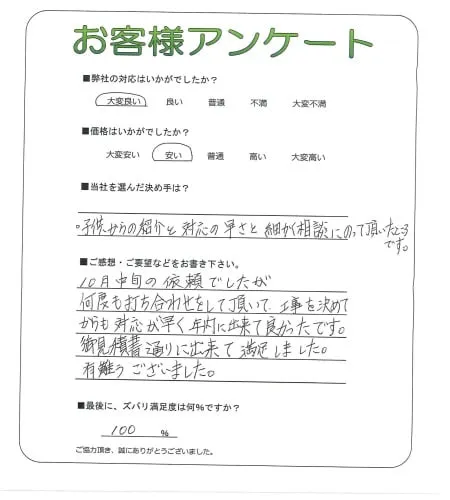 お客様アンケート
■弊社の対応はいかがでしたか？
大変良い 良い 普通 不満 大変不満
■価格はいかがでしたか？
大変安い 安い 普通 高い 大変高い
■当社を選んだ決め手は？
・子供からの紹介と対応の早さと細かく相談にのって頂いたところ
です。
■ご感想・ご要望などをお書き下さい。
10月中旬の依頼でしたが
何度も打ち合わせをして頂いて、工事を決めて
からも対応が早く年内に出来て良かったです。
御見積書通りに出来て満足しました。
有難うございました。
■最後に、ズバリ満足度は何％ですか？
100 ％
ご協力頂き、誠にありがとうございました。